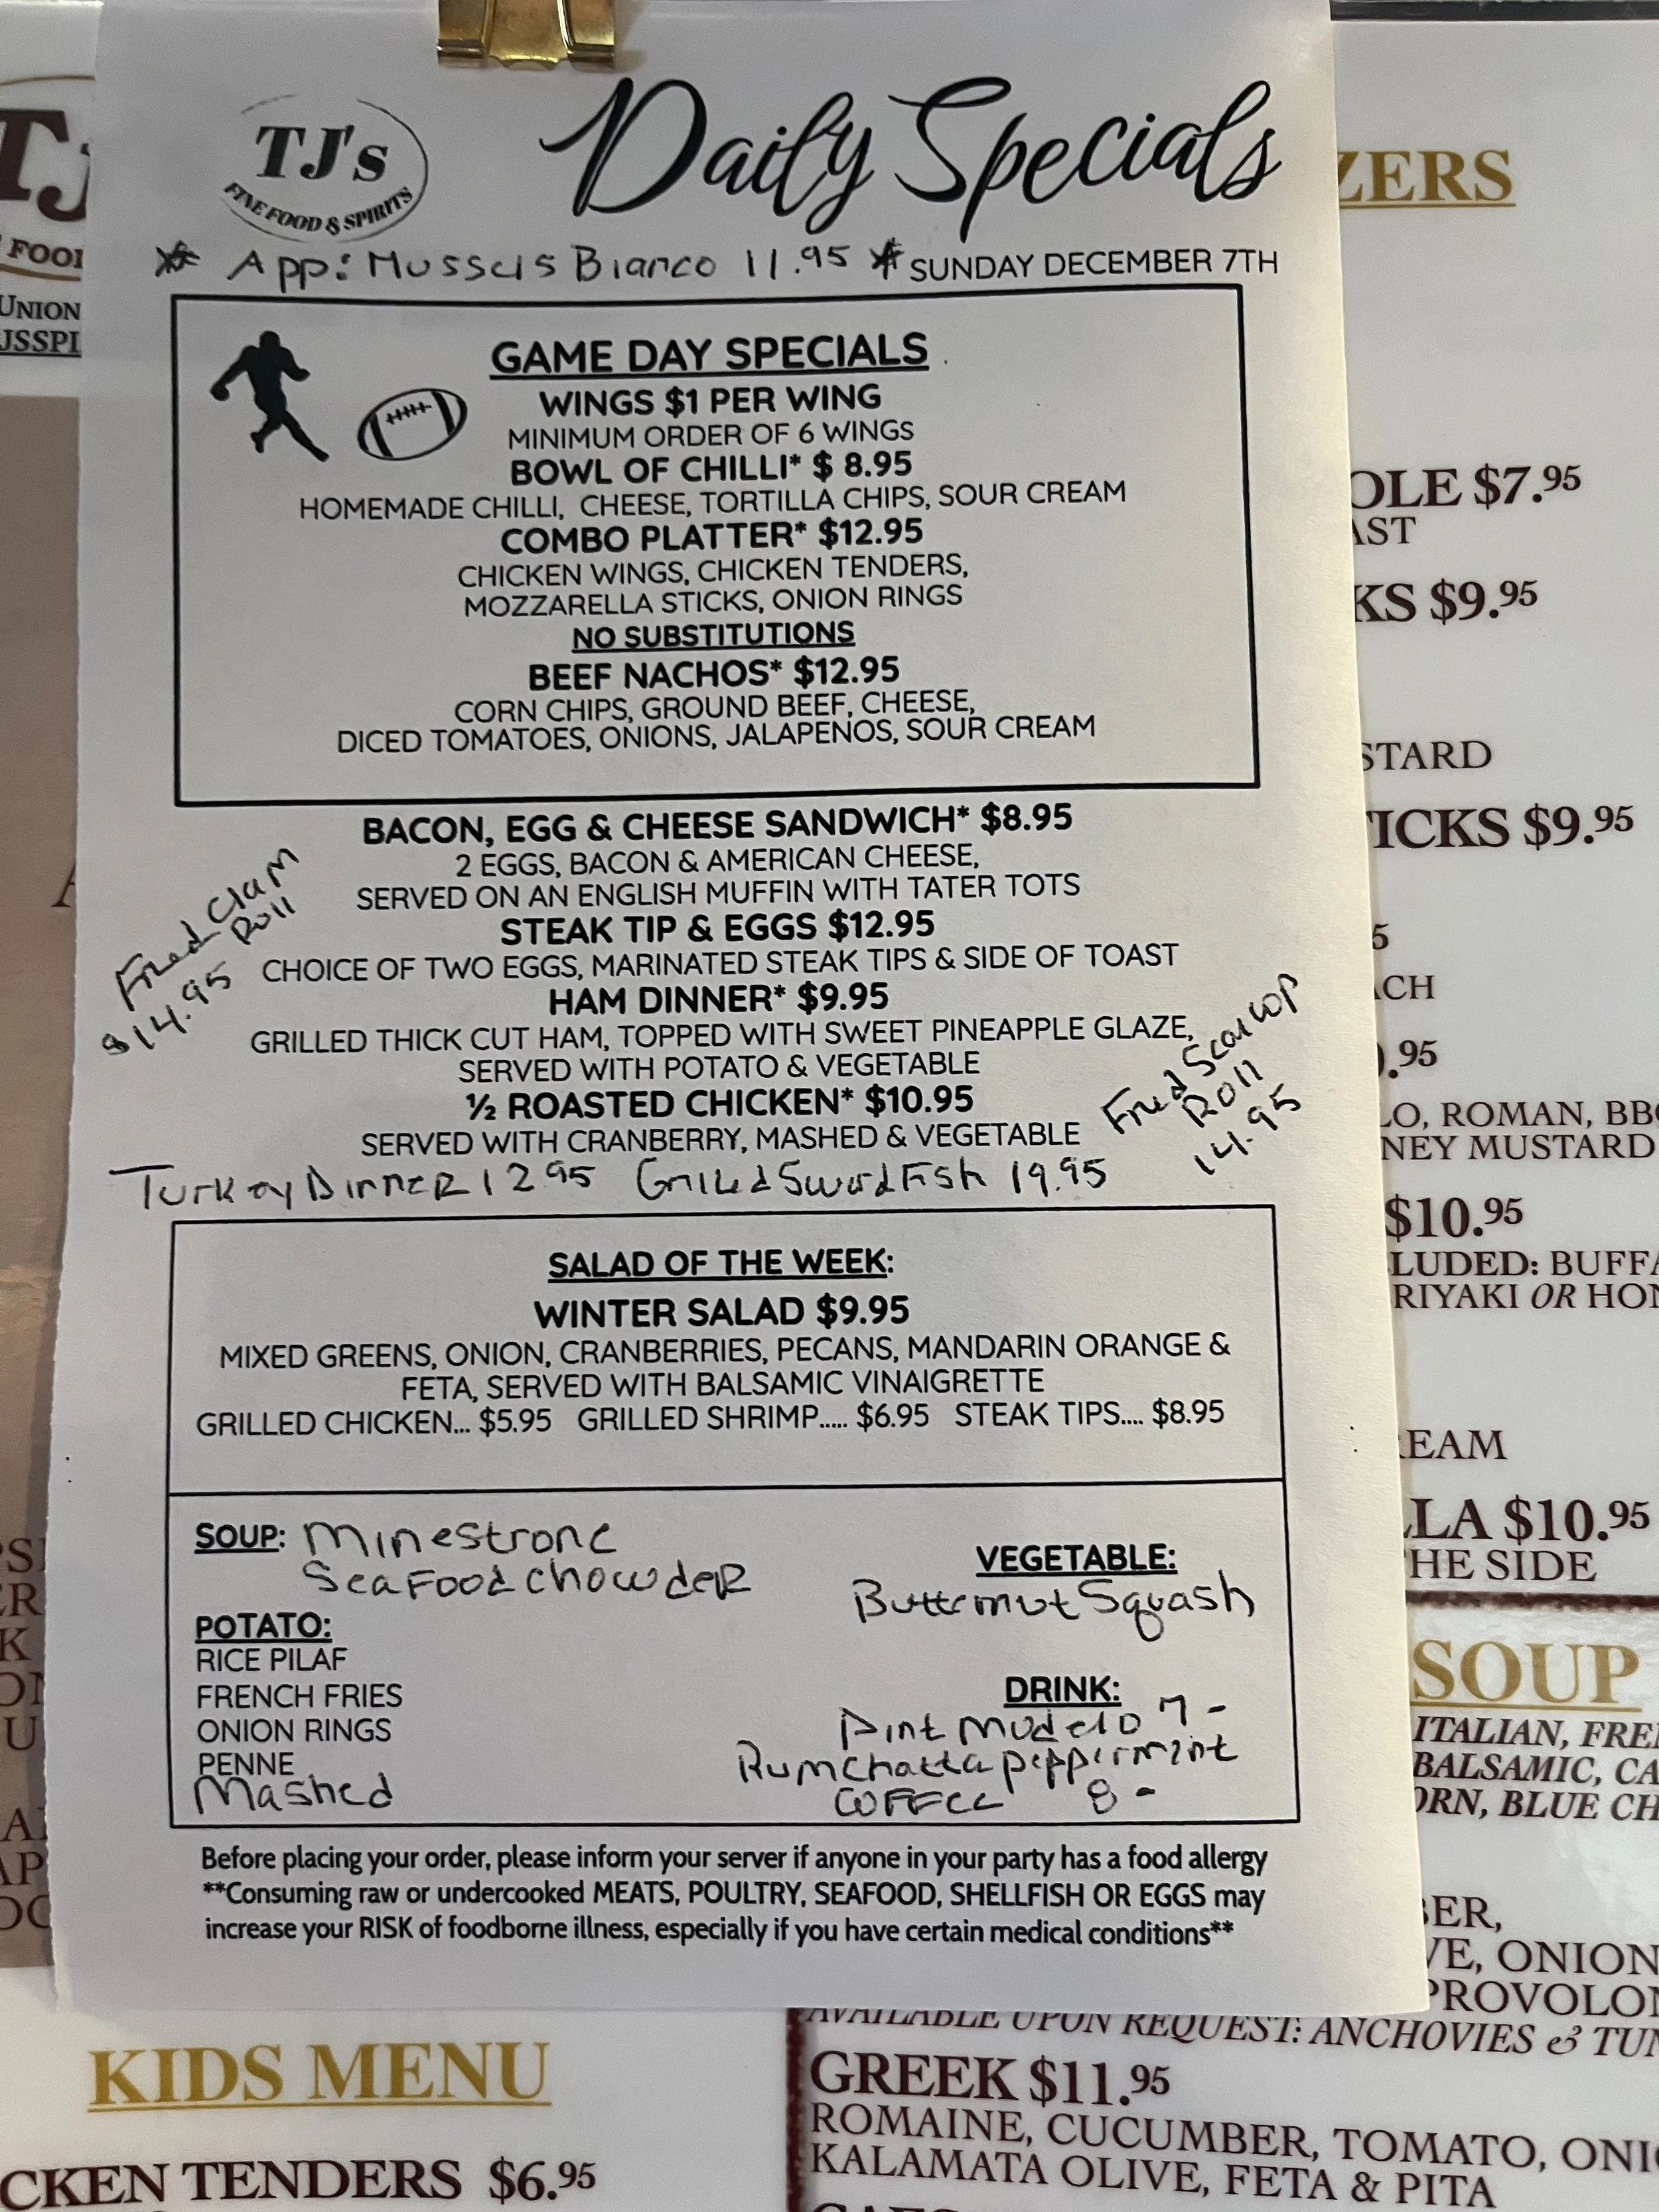 TJ's
FINE FOOD & SPIRITS
Daily Specials
* App: Mussels Bianco 11.95 * SUNDAY DECEMBER 7TH
GAME DAY SPECIALS
WINGS $1 PER WING
MINIMUM ORDER OF 6 WINGS
BOWL OF CHILLI* $ 8.95
HOMEMADE CHILLI, CHEESE, TORTILLA CHIPS, SOUR CREAM
COMBO PLATTER* $12.95
CHICKEN WINGS, CHICKEN TENDERS,
MOZZARELLA STICKS, ONION RINGS
NO SUBSTITUTIONS
BEEF NACHOS* $12.95
CORN CHIPS, GROUND BEEF, CHEESE,
DICED TOMATOES, ONIONS, JALAPENOS, SOUR CREAM
BACON, EGG & CHEESE SANDWICH* $8.95
2 EGGS, BACON & AMERICAN CHEESE,
SERVED ON AN ENGLISH MUFFIN WITH TATER TOTS
Fried Clam
Roll
$14.95
STEAK TIP & EGGS $12.95
CHOICE OF TWO EGGS, MARINATED STEAK TIPS & SIDE OF TOAST
HAM DINNER* $9.95
GRILLED THICK CUT HAM, TOPPED WITH SWEET PINEAPPLE GLAZE,
SERVED WITH POTATO & VEGETABLE
½ ROASTED CHICKEN* $10.95
SERVED WITH CRANBERRY, MASHED & VEGETABLE
Fried Scallop
Roll
14.95
Turkey Dinner 12.95 Grilled SwordFish 19.95
SALAD OF THE WEEK:
WINTER SALAD $9.95
MIXED GREENS, ONION, CRANBERRIES, PECANS, MANDARIN ORANGE &
FETA, SERVED WITH BALSAMIC VINAIGRETTE
GRILLED CHICKEN... $5.95 GRILLED SHRIMP..... $6.95 STEAK TIPS.... $8.95
SOUP: Minestrone
SeaFood chowder
POTATO:
RICE PILAF
FRENCH FRIES
ONION RINGS
PENNE
Mashed
VEGETABLE:
Butternut Squash
DRINK:
Pint Modelo 7-
Rumchatta peppermint
coffee 8-
Before placing your order, please inform your server if anyone in your party has a food allergy
**Consuming raw or undercooked MEATS, POULTRY, SEAFOOD, SHELLFISH OR EGGS may
increase your RISK of foodborne illness, especially if you have certain medical conditions**
TJ
FOOD
UNION
JSSPI
ZERS
OLE $7.95
AST
KS $9.95
STARD
TICKS $9.95
5
ACH
.95
LO, ROMAN, BBQ
NEY MUSTARD
$10.95
LUDED: BUFFA
RIYAKI OR HON
REAM
LLA $10.95
HE SIDE
SOUP
ITALIAN, FREN
BALSAMIC, CA
ORN, BLUE CH
BER,
VE, ONION
PROVOLON
AVAILABLE UPON REQUEST: ANCHOVIES & TUN
GREEK $11.95
ROMAINE, CUCUMBER, TOMATO, ONIO
KALAMATA OLIVE, FETA & PITA
KIDS MENU
CKEN TENDERS $6.95